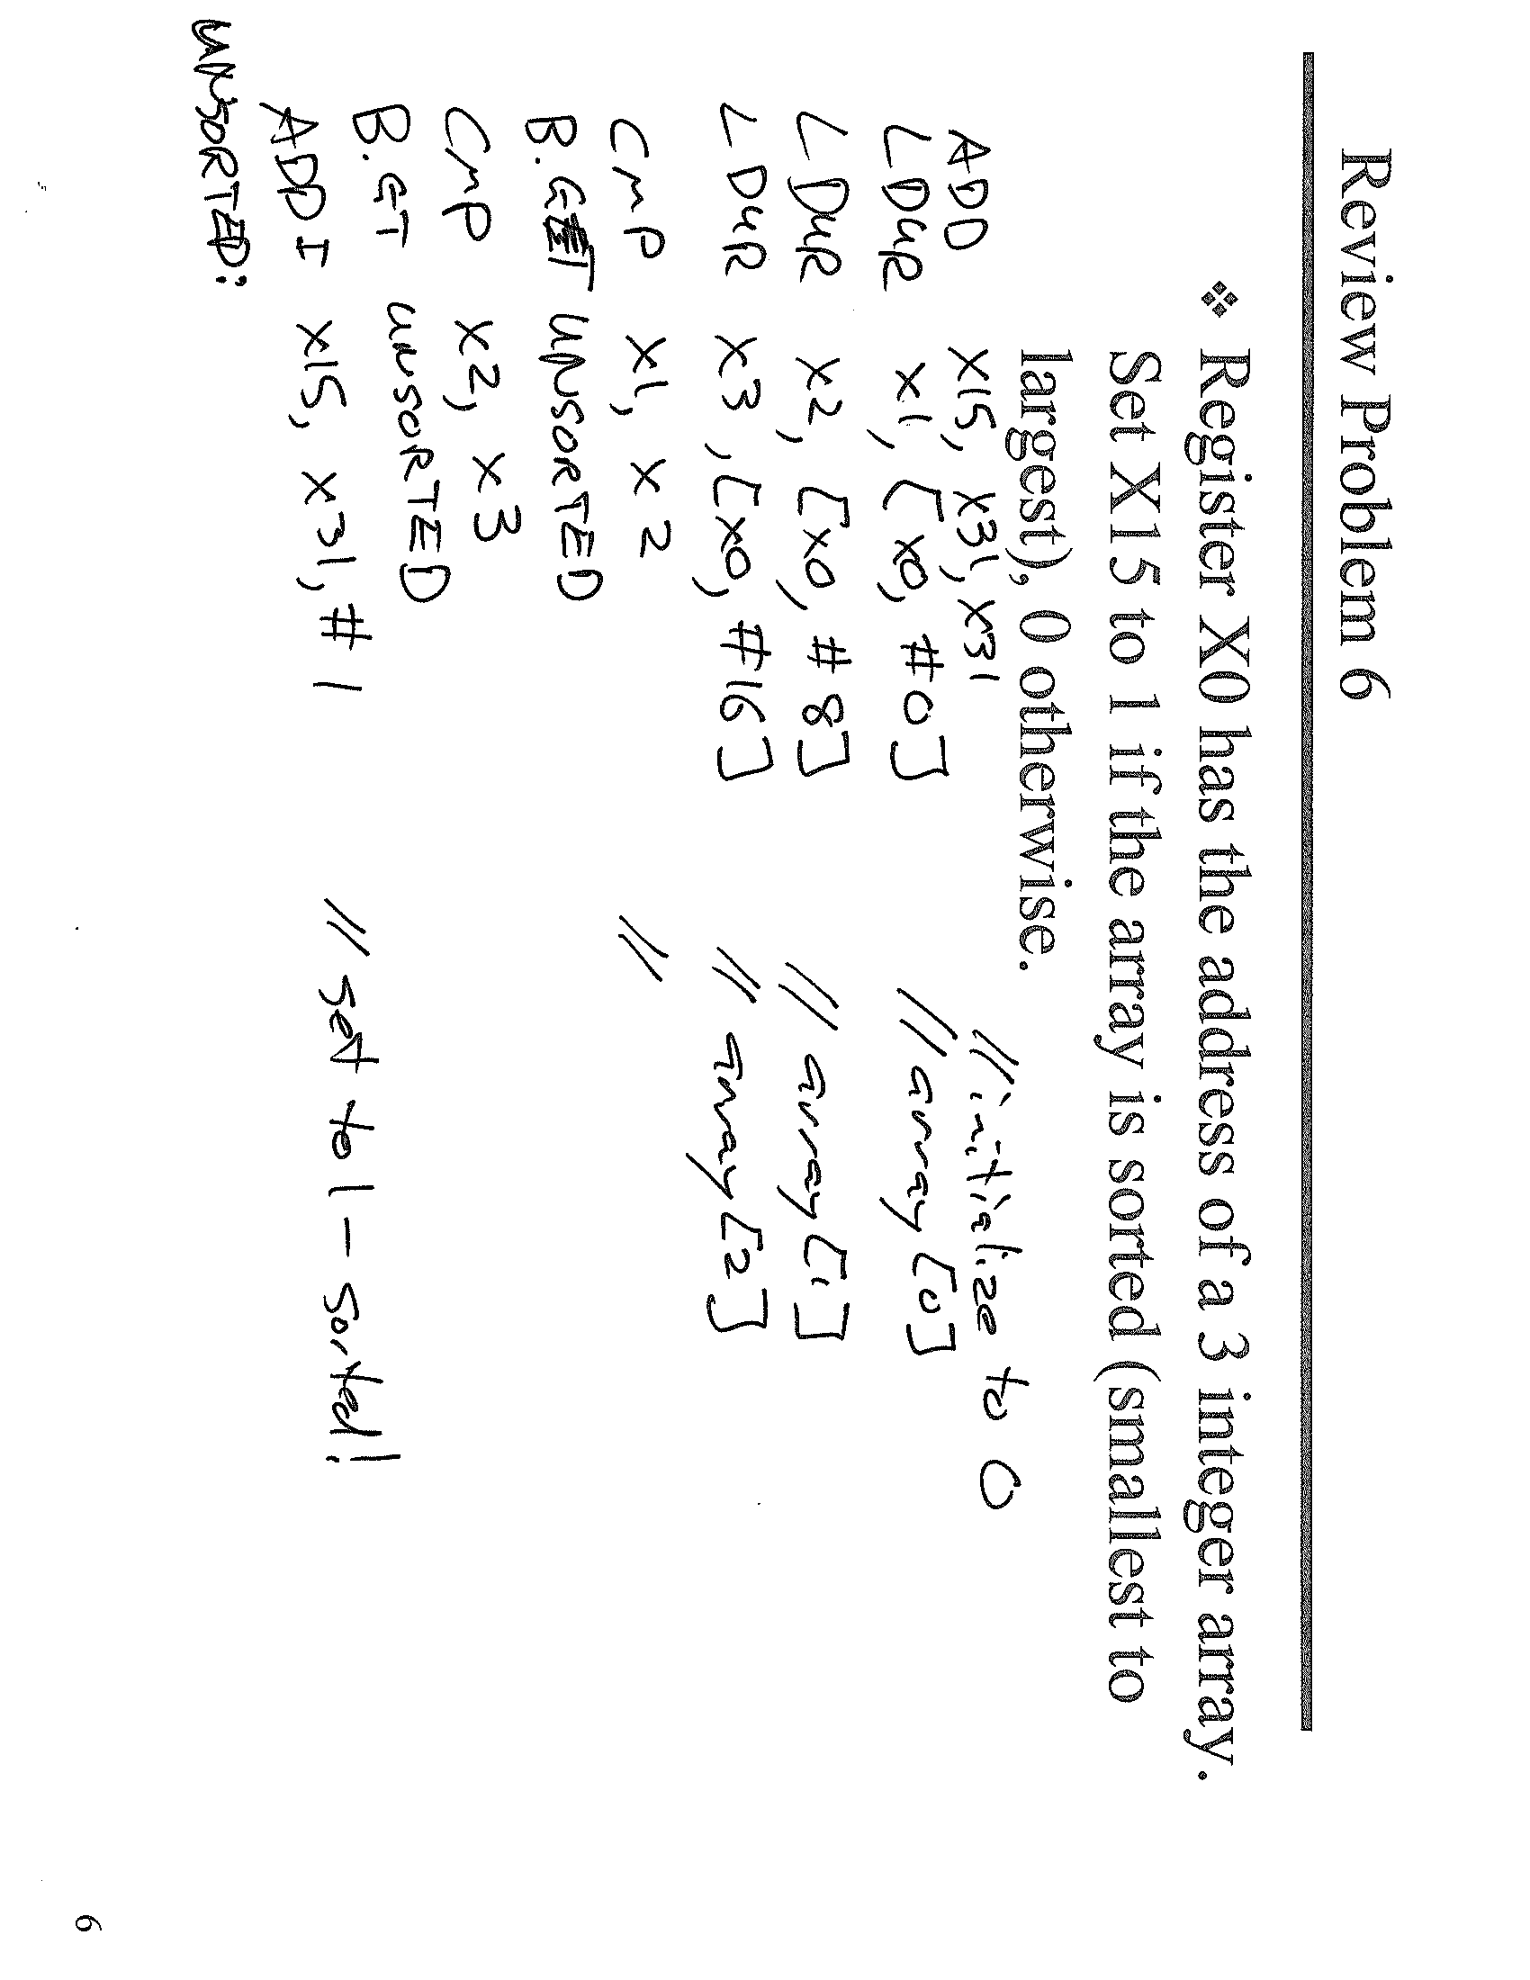 Review Problem 6
❖ Register X0 has the address of a 3 integer array.
Set X15 to 1 if the array is sorted (smallest to
largest), 0 otherwise.
ADD X15, X31, X31 // initialize to 0
LDUR X1, [X0, #0] // array [0]
LDUR X2, [X0, #8] // array [1]
LDUR X3, [X0, #16] // array [2]
CMP X1, X2 //
B.GT UNSORTED
CMP X2, X3
B.GT UNSORTED
ADDI X15, X31, #1 // set to 1 - sorted!
UNSORTED:
6